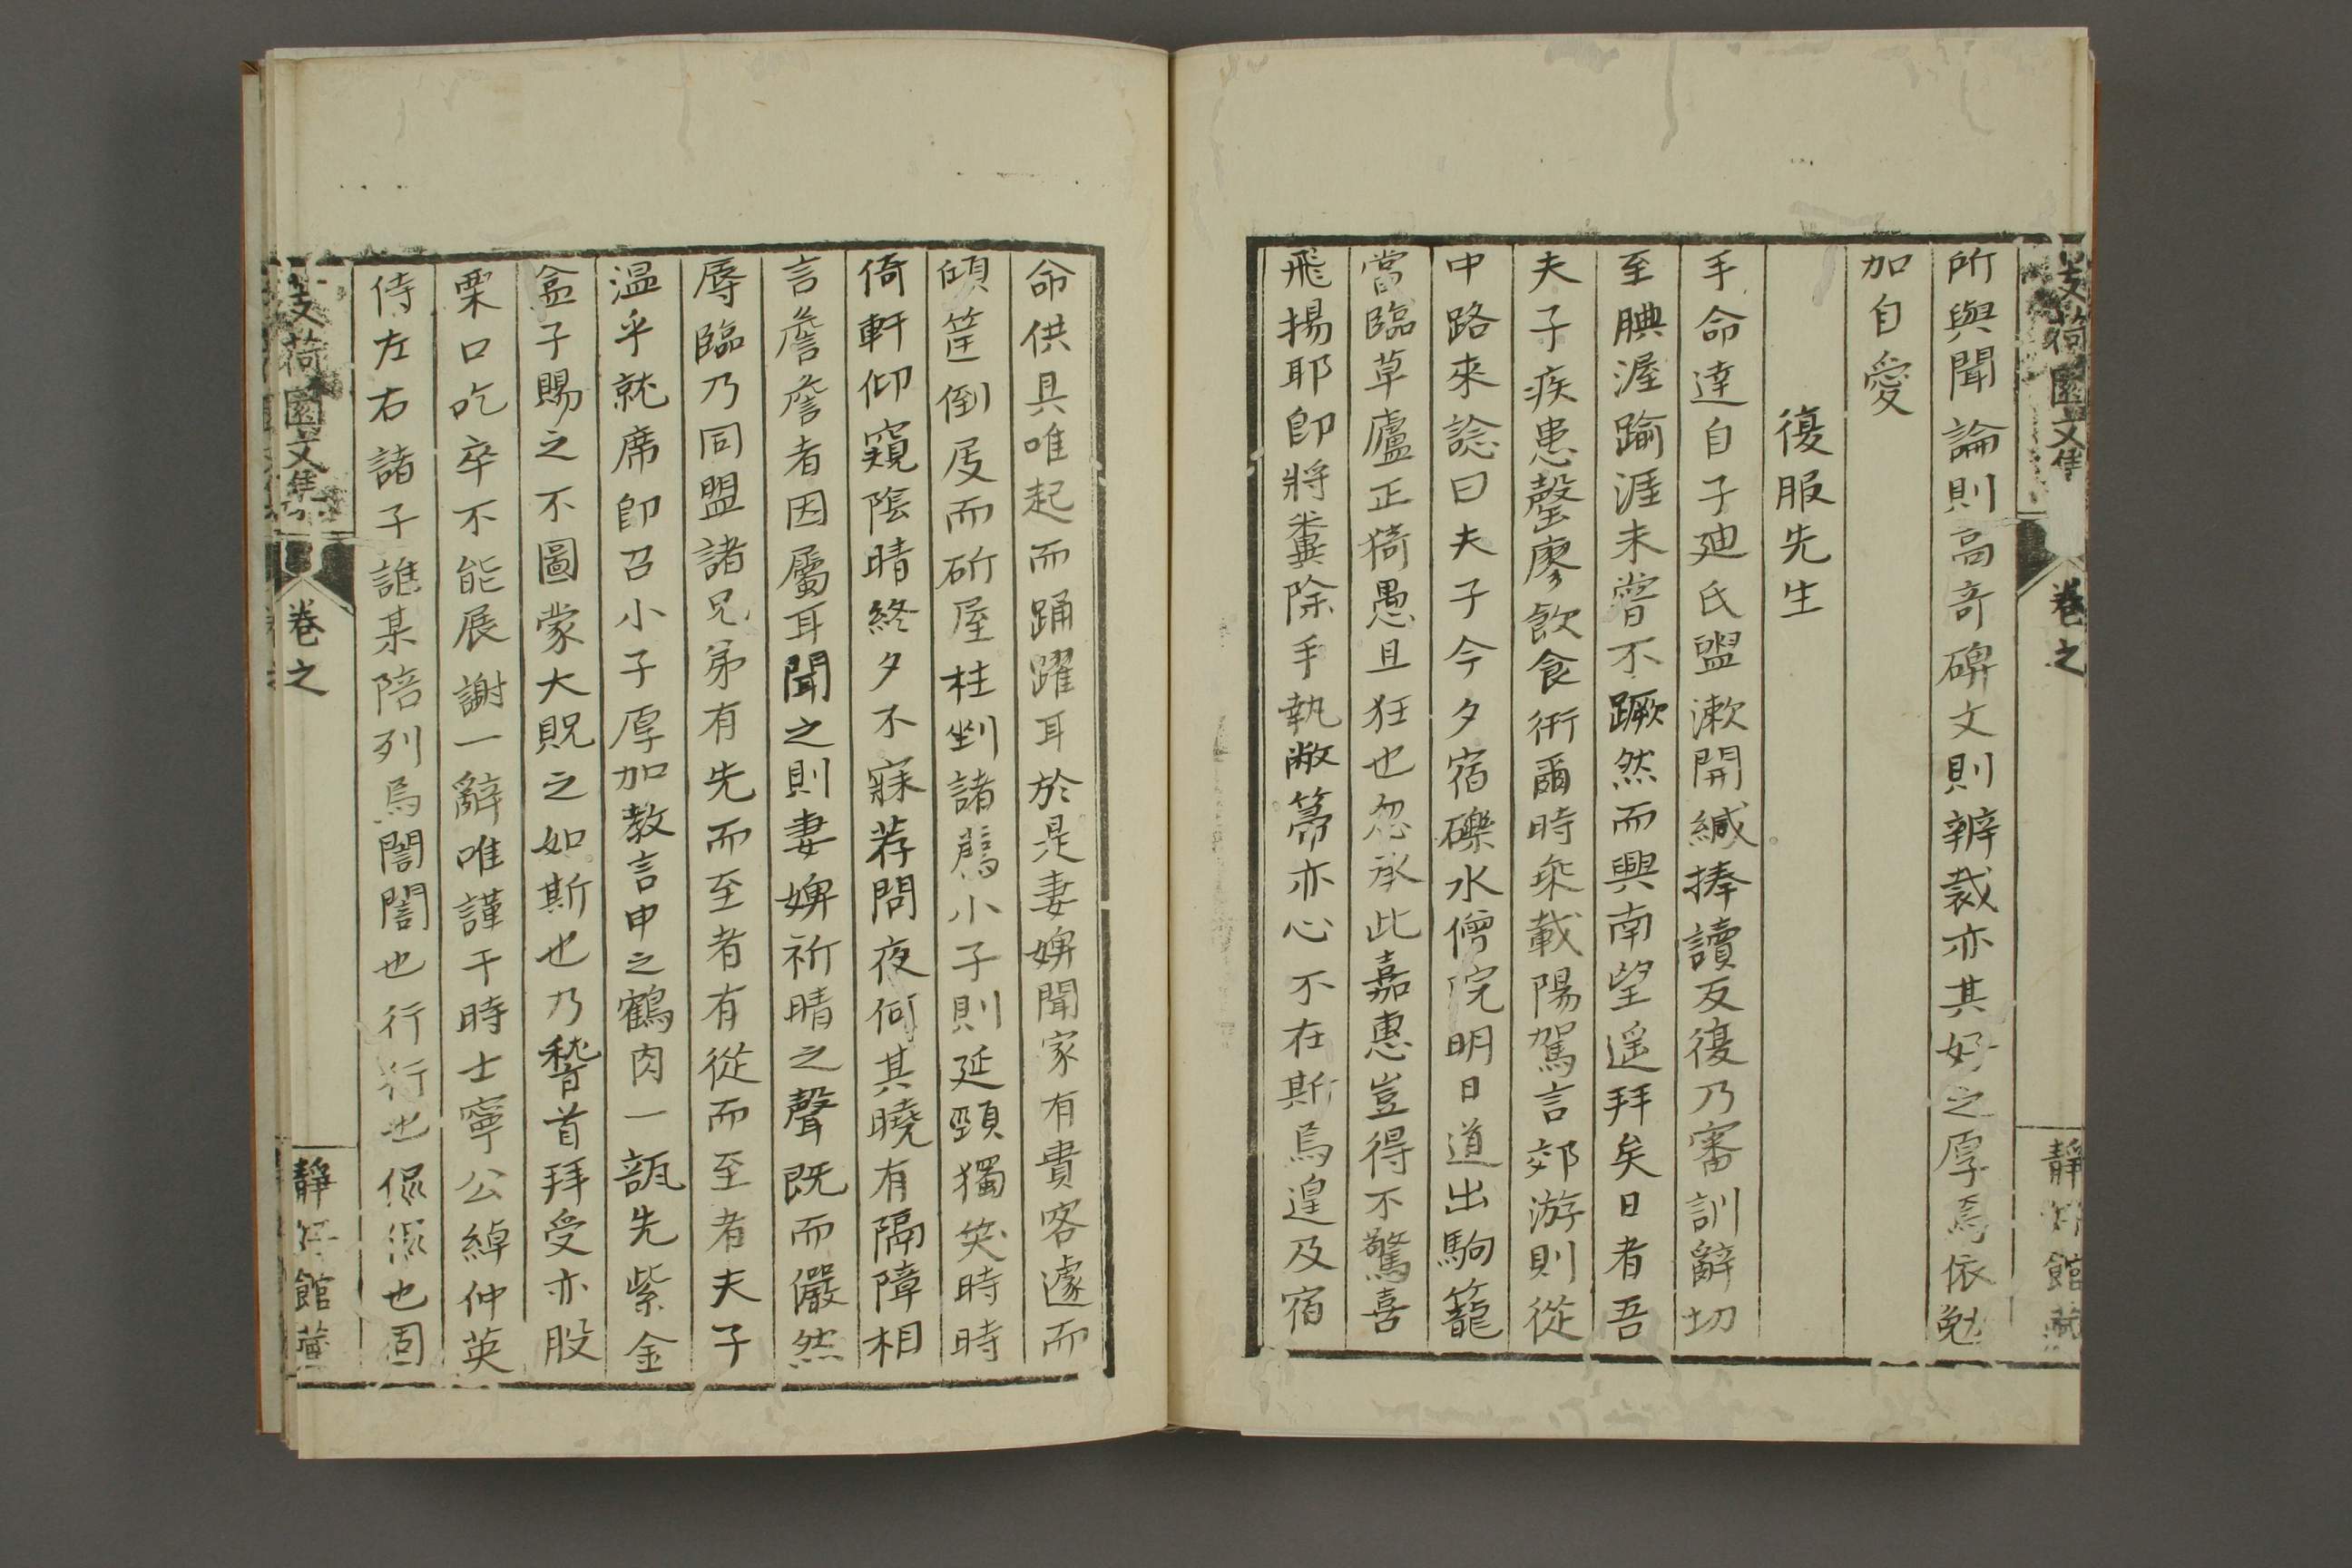 芰荷園文集
卷之
靜好館藏
所與聞論則高奇碑文則辨裁亦其好之厚焉依勉
加自愛
復服先生
手命達自子廸氏盥漱開緘捧讀反復乃審訓辭切
至腆渥踰涯未嘗不蹶然而興南望遥拜矣日者吾
夫子疾患罄廖飲食衎爾時椉載陽駕言郊游則從
中路來諗曰夫子今夕宿礫水僧院明日道出駒籠
當臨草廬正猗愚且狂也忽承此嘉惠豈得不驚喜
飛揚耶卽將糞除手執敝箒亦心不在斯焉遑及宿
命供具唯起而踊躍耳於是妻婢聞家有貴客遽而
傾筐倒屐而斫屋柱剉諸薦小子則延頸獨笑時時
倚軒仰窺陰晴終夕不寐荐問夜何其曉有隔障相
言詹詹者因屬耳聞之則妻婢祈晴之聲既而儼然
辱臨乃同盟諸兄弟有先而至者有從而至者夫子
温乎就席卽召小子厚加教言申之鶴肉一瓿先紫金
盒子賜之不圖蒙大貺之如斯也乃稽首拜受亦股
栗口吃卒不能展謝一辭唯謹干時士寧公綽仲英
侍左右諸子譙某陪列焉誾誾也行行也侃侃也固
芰荷園文集
卷之
靜好館藏